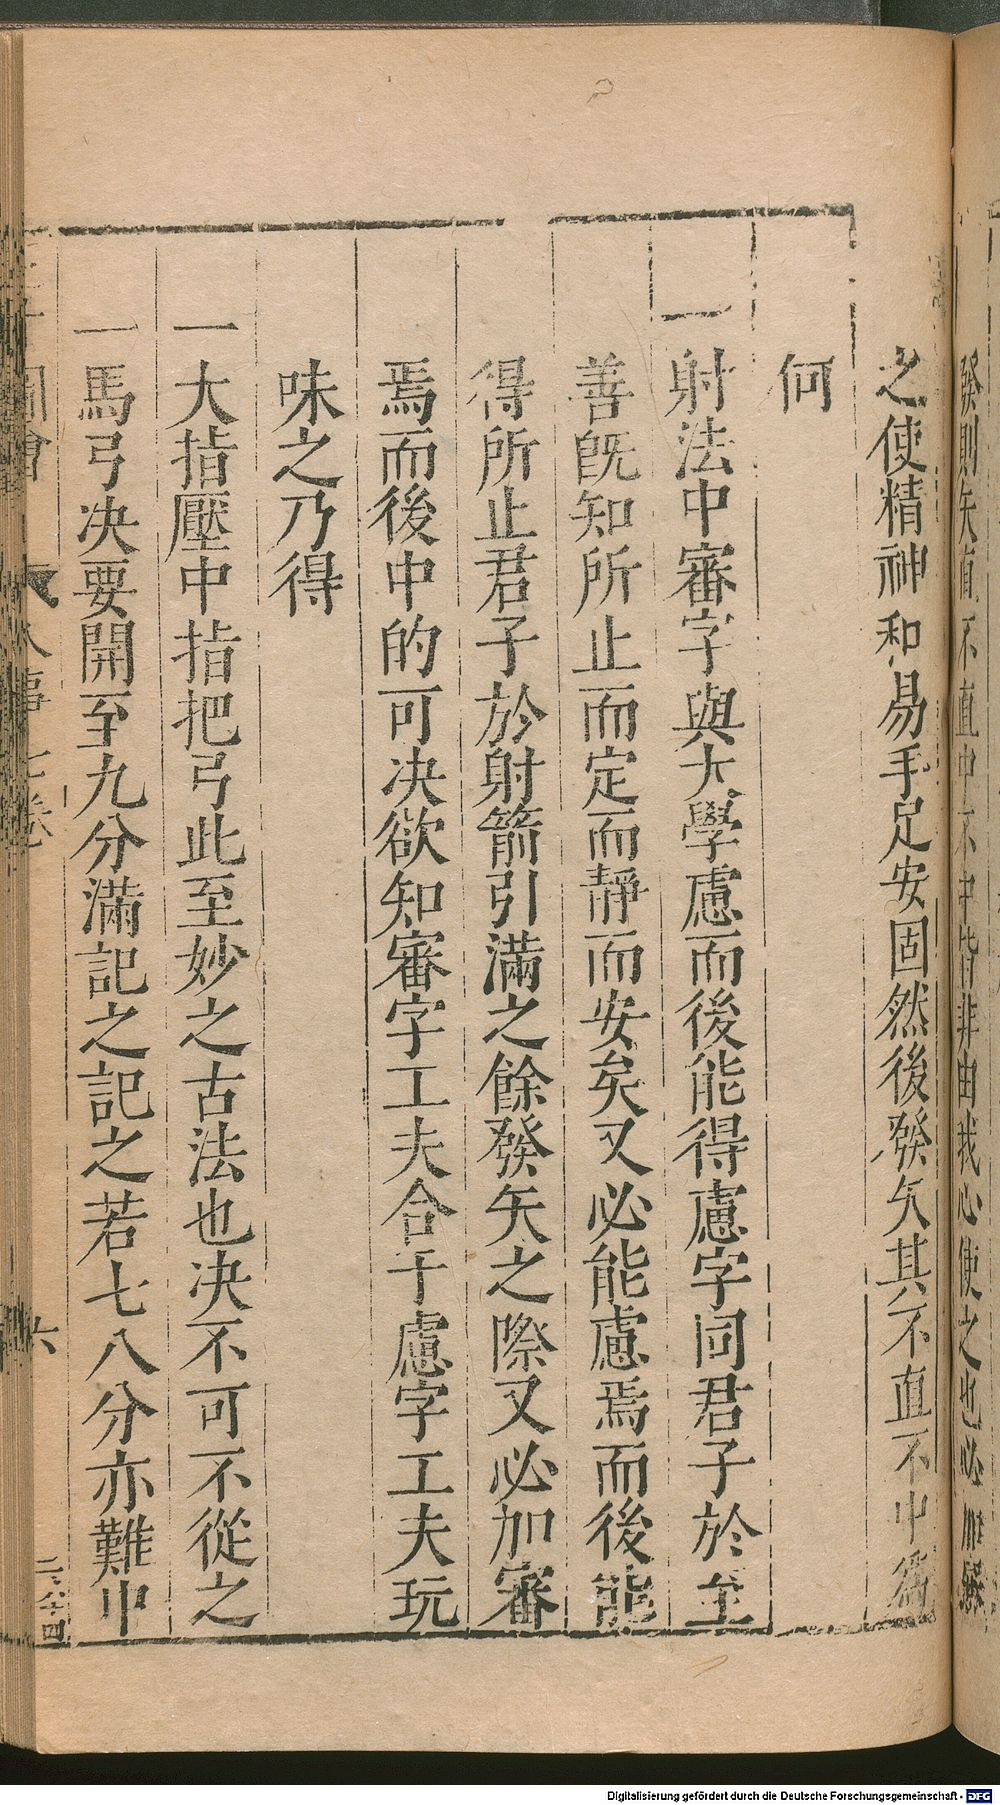 之使精神和易手足安固然後發矢其不直不中爲
何
一射法中審字與大學慮而後能得慮字同君子於至
善旣知所止而定而靜而安矣又必能慮焉而後能
得所止君子於射箭引滿之餘發矢之際又必加審
焉而後中的可决欲知審字工夫合于慮字工夫玩
味之乃得
一大指壓中指把弓此至妙之古法也决不可不從之
一馬弓决要開至九分滿記之記之若七八分亦難中
圖會 人事七卷 六
發則矢直不直中不中皆非由我心使之也必加
Digitalisierung gefördert durch die Deutsche Forschungsgemeinschaft - DFG